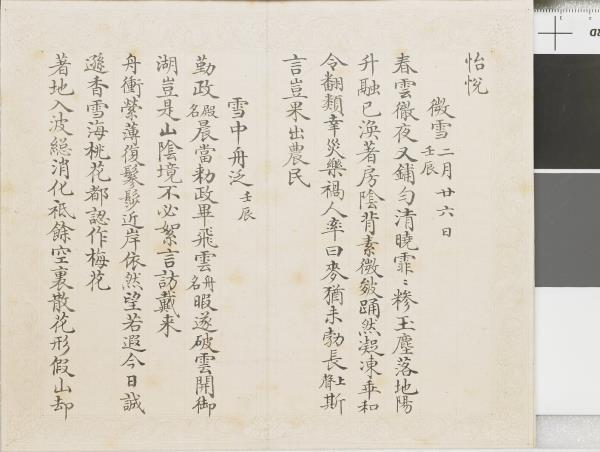 怡悅
微雪 二月廿六日 壬辰
春雲徹夜又鋪勻清曉霏〻糝玉塵落地陽
升融已渙著房陰背素微皴踊然凝凍乖和
令翻類幸災樂禍人率曰麥猶未勃長上聲斯
言豈果出農民
雪中舟泛壬辰
勤政殿名晨當勑政畢飛雲舟名暇遂破雲開御
湖豈是山陰境不必絮言訪戴来
舟衝縈薄復鬖髿近岸依然望若遐今日誠
遜香雪海桃花都認作梅花
著地入波總消化祗餘空裏散花形假山却